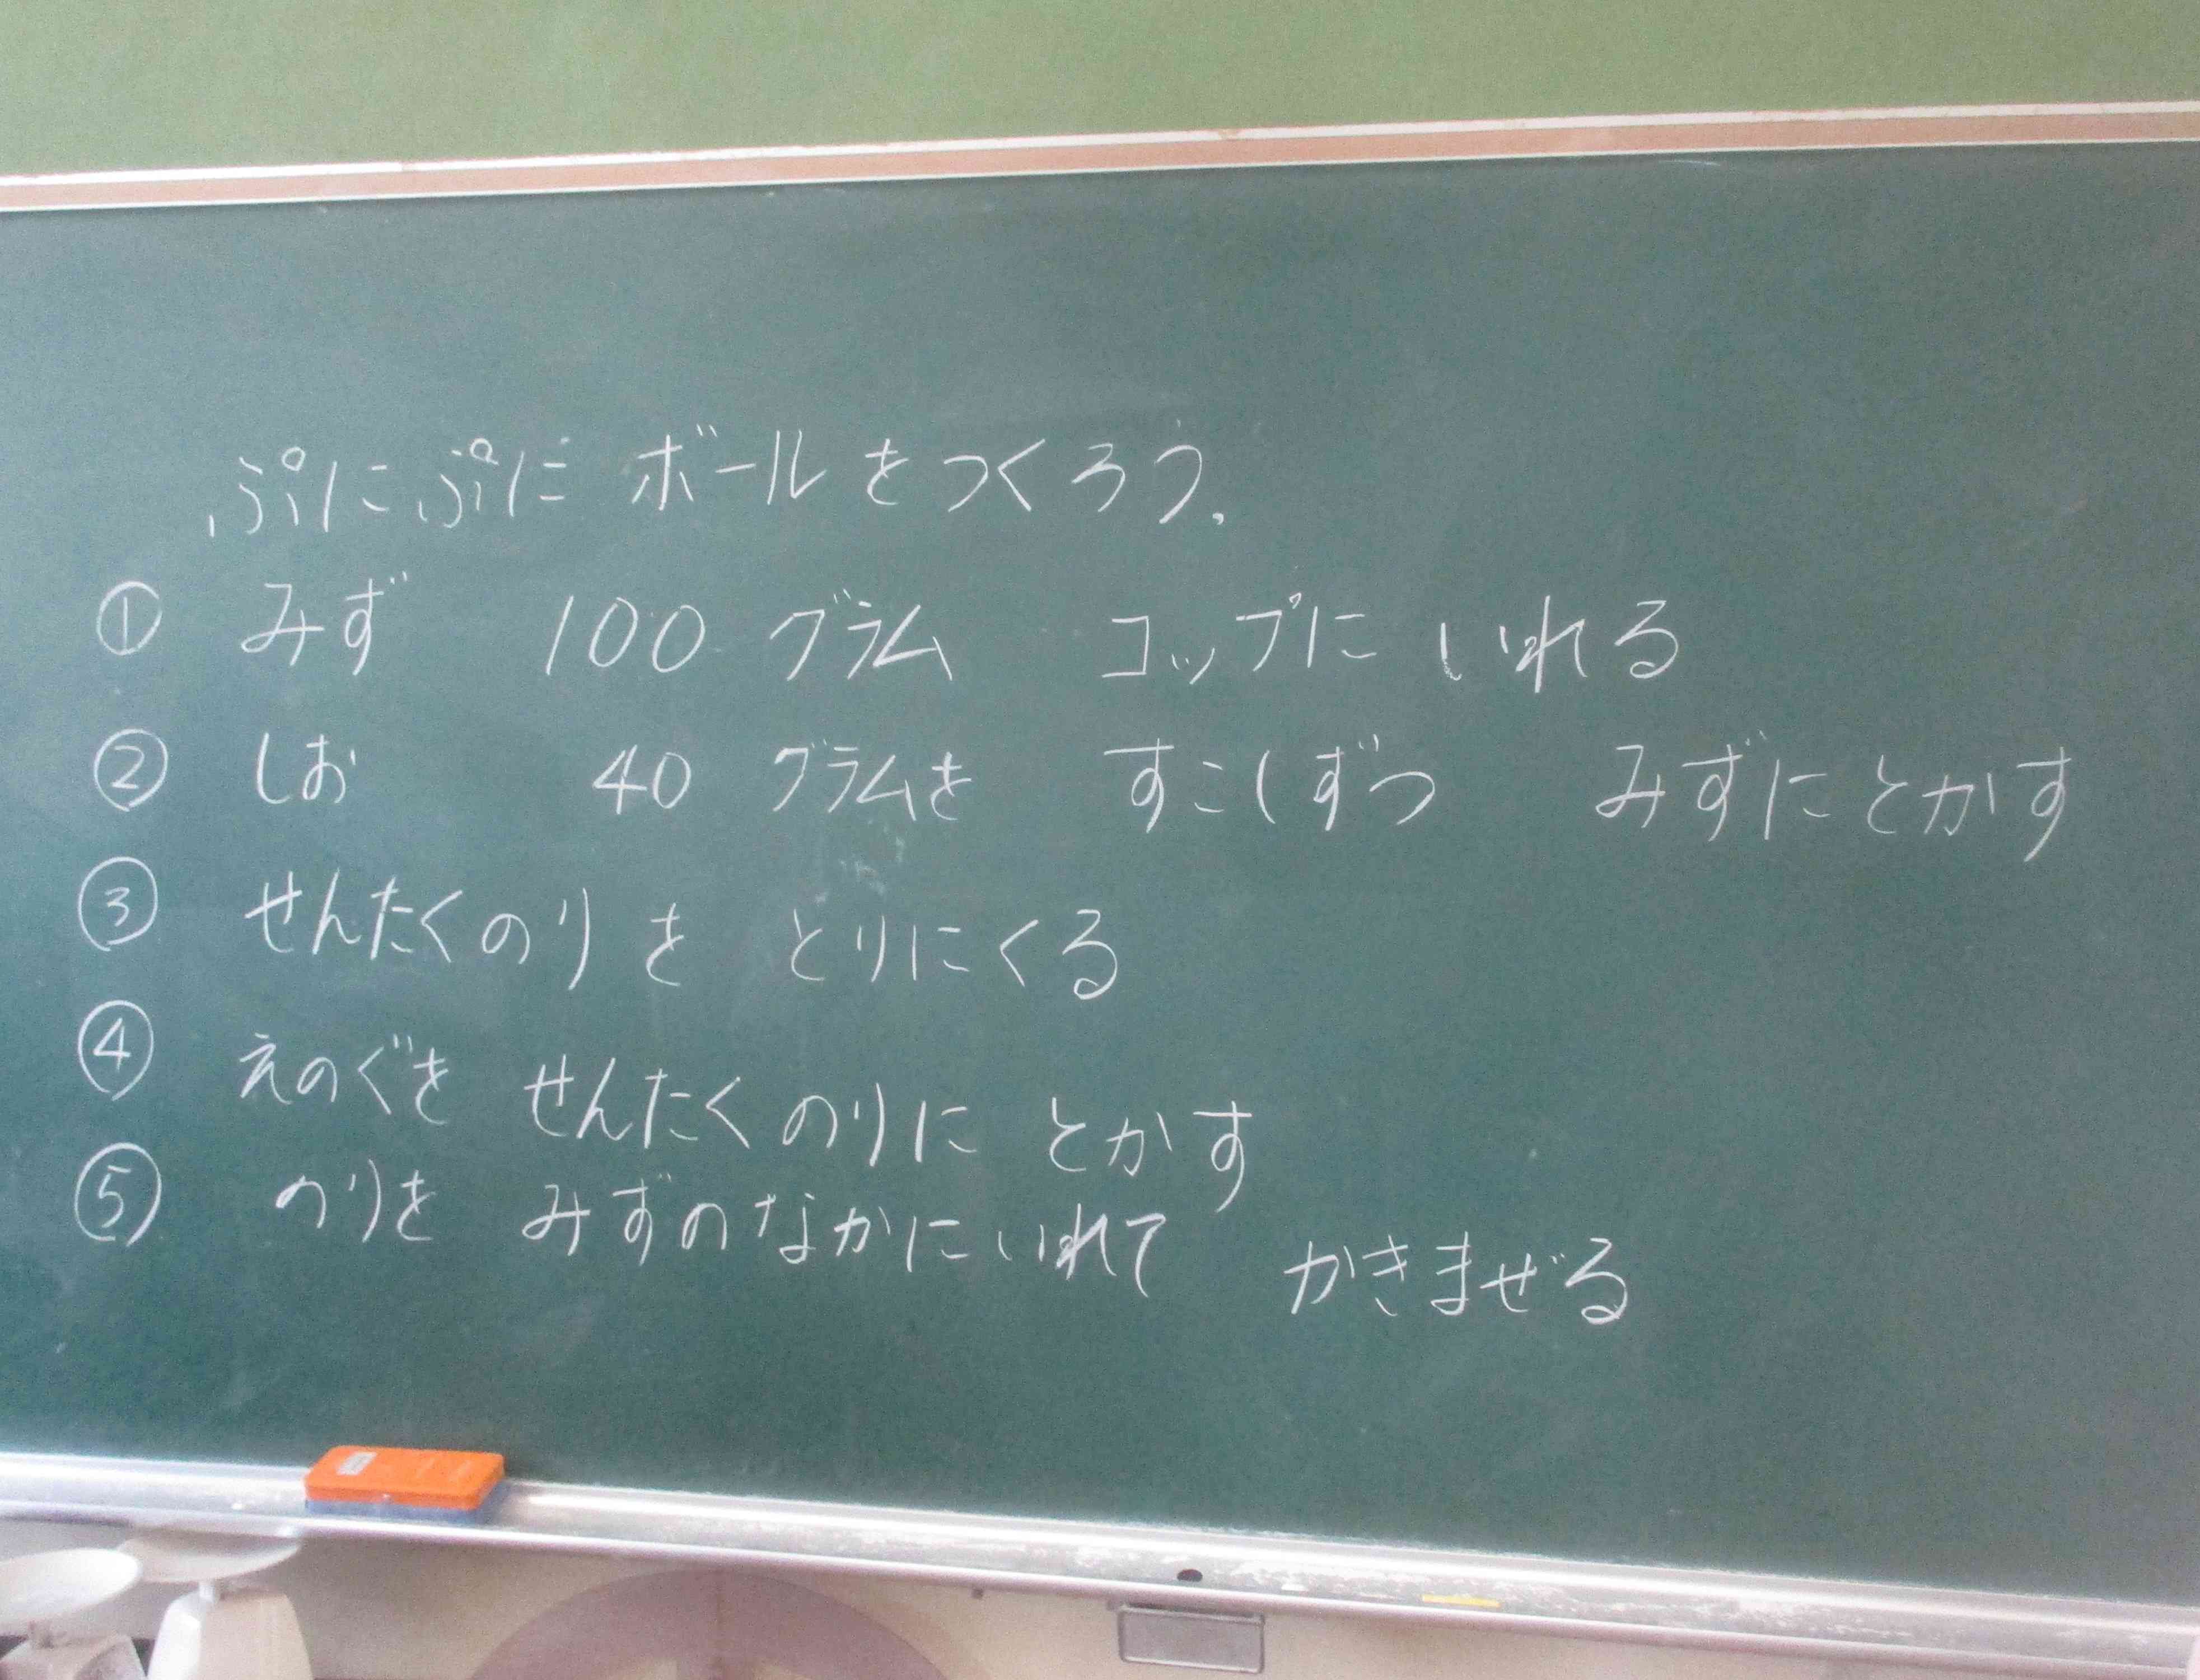 ぷにぷに ボールをつくろう.
① みず 100 グラム コップに いれる
② しお 40 グラムを すこしずつ みずにとかす
③ せんたくのりを とりにくる
④ えのぐを せんたくのりに とかす
⑤ のりを みずのなかにいれて かきまぜる